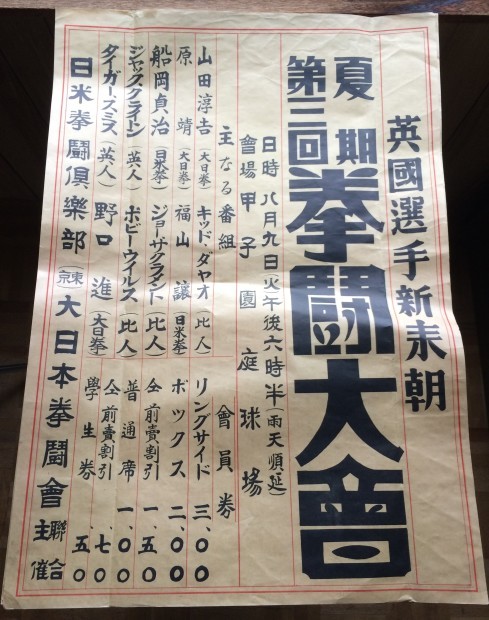 英國選手新来朝
夏期
第三回
拳闘大會
日時 八月九日(火)午後六時半(雨天順延)
會場 甲子園庭球場
主なる番組
山田淳吉(大日拳) キッド・ダヤオ(比人)
原靖(大日拳) 福山讓(日米拳)
船岡貞治(日米拳) ジョー・サクラメント(比人)
ジャッククライトン(英人) ボビーウイルス(比人)
タイガースミス(英人) 野口進(大日拳)
會員券
リングサイド 三、〇〇
ボックス 二、〇〇
仝前賣割引 一、五〇
普通席 一、〇〇
仝前賣割引 、七〇
學生券 、五〇
日米拳鬪俱樂部(東京)大日本拳鬪會聯合主催